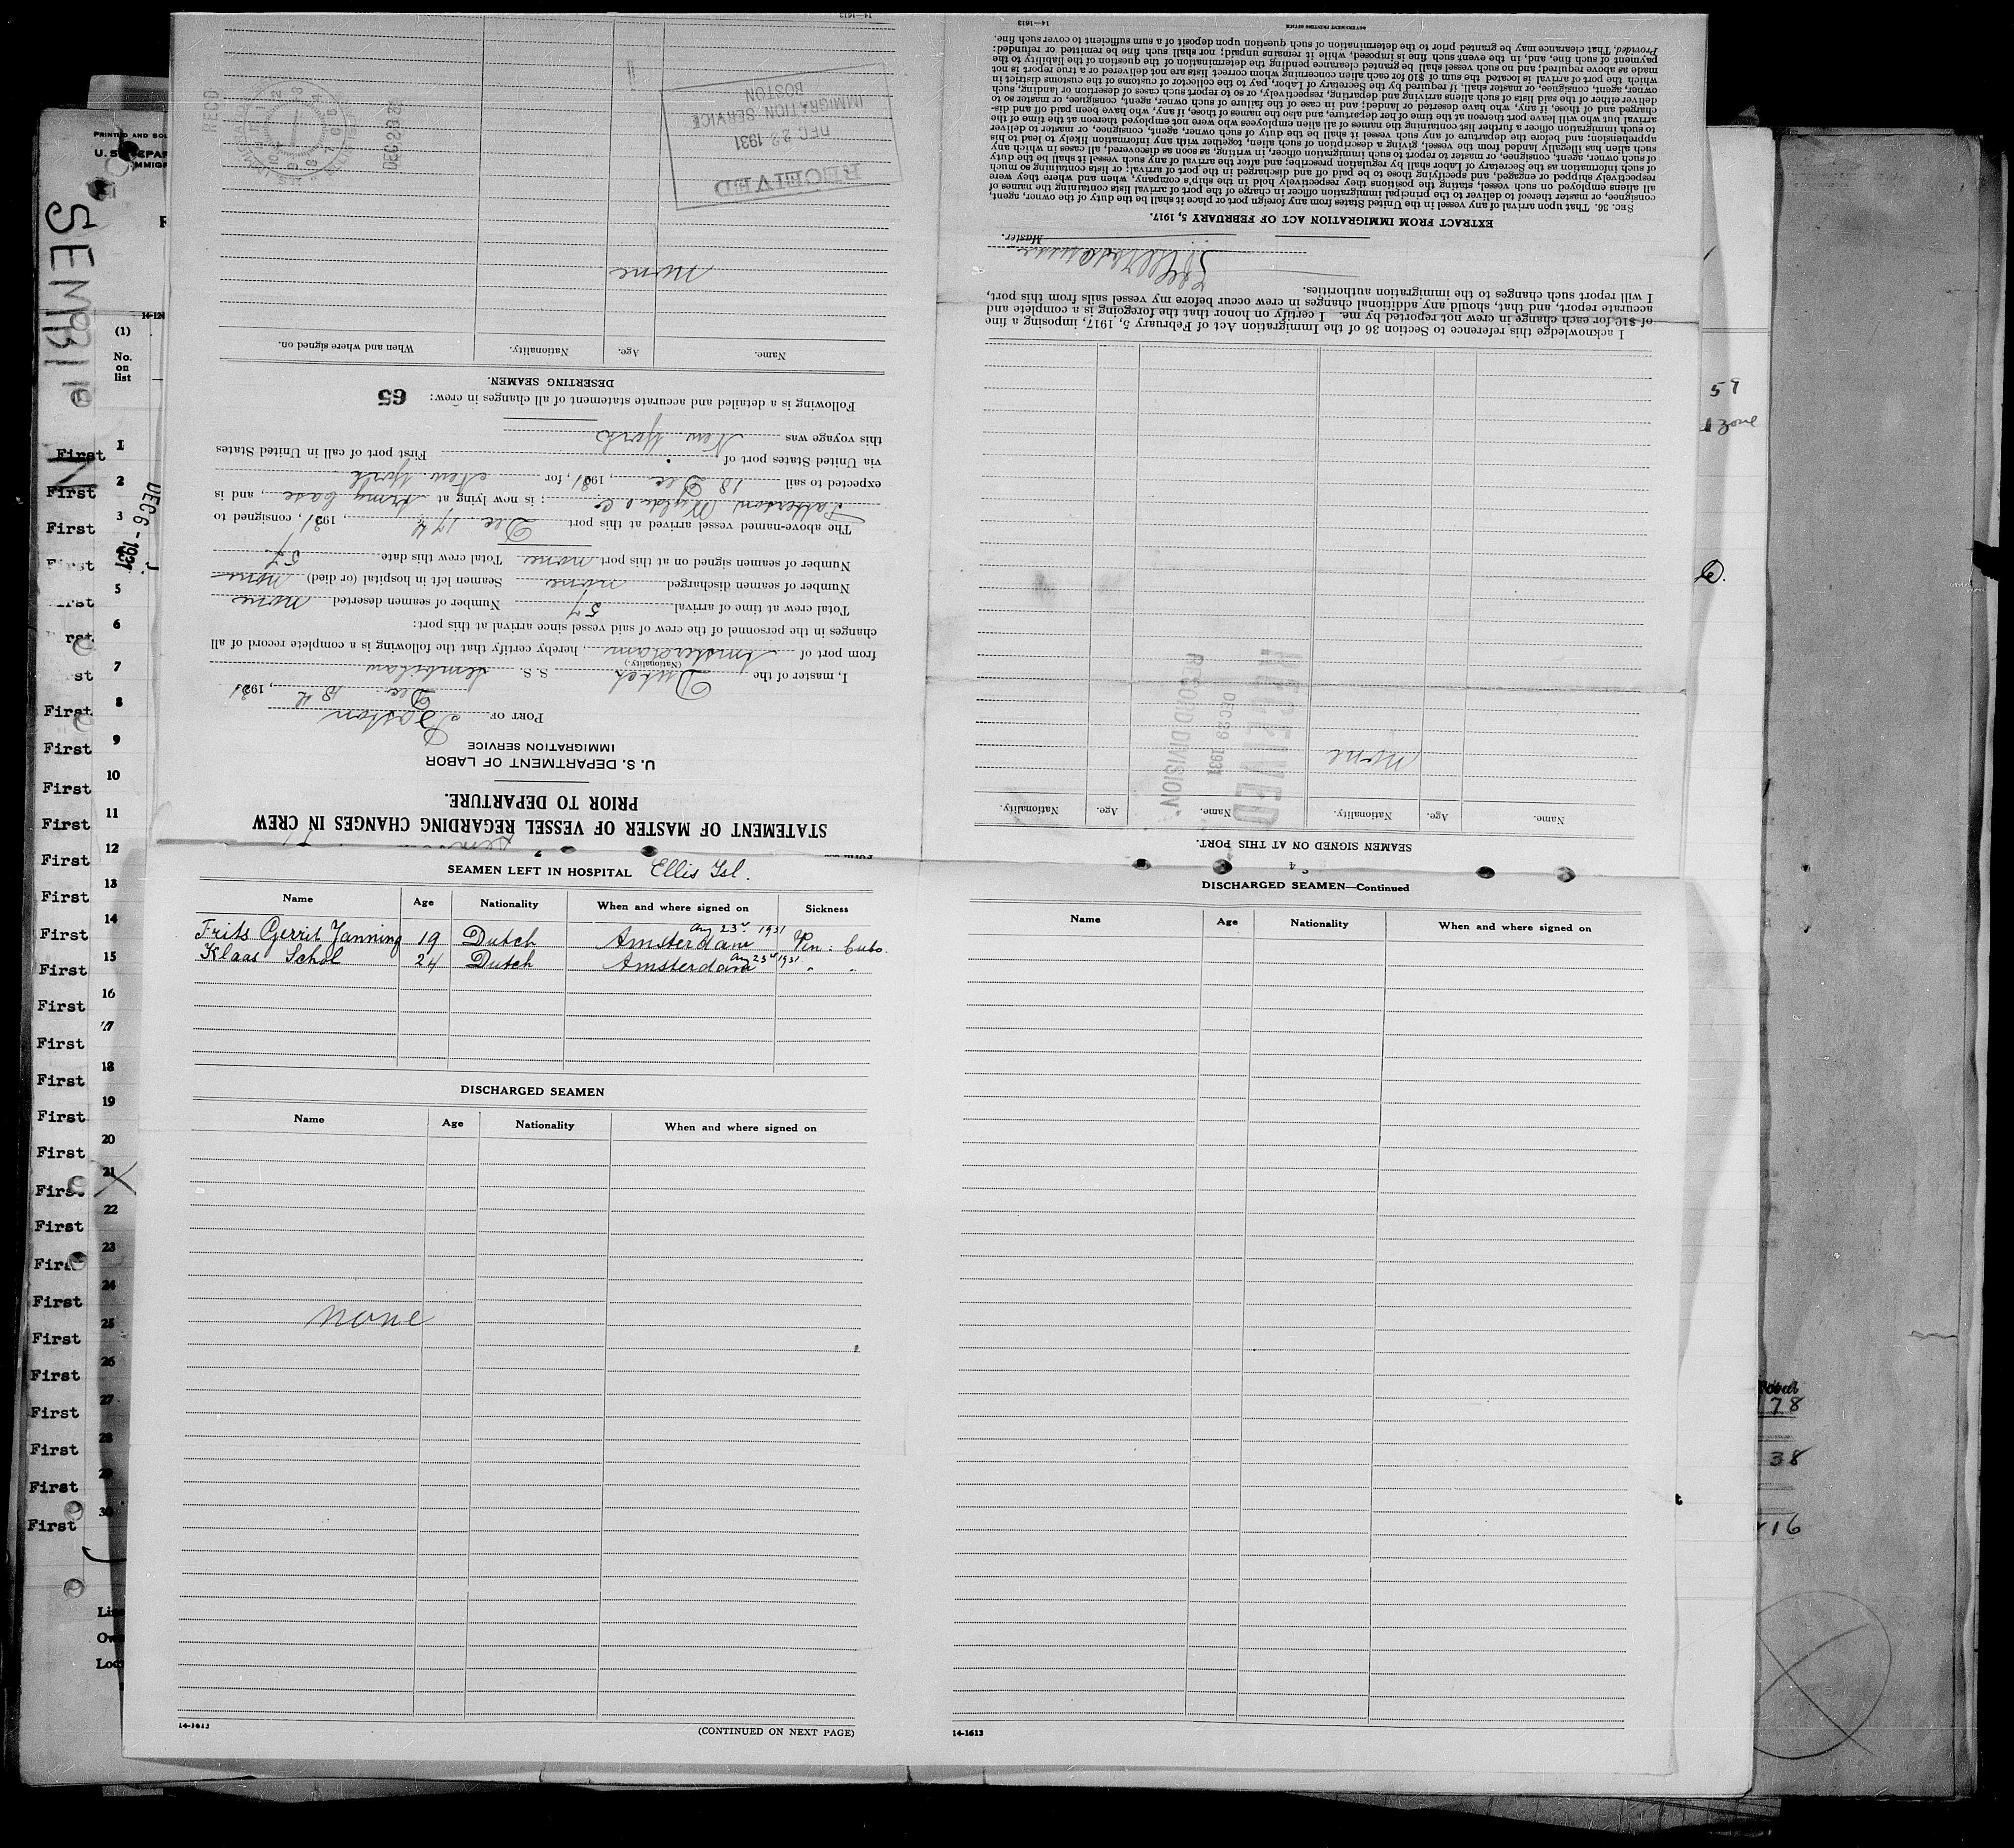 STATEMENT OF MASTER OF VESSEL REGARDING CHANGES IN CREW
PRIOR TO DEPARTURE.
U. S. DEPARTMENT OF LABOR
IMMIGRATION SERVICE
PORT OF Boston
Dec. 18th, 1931
I, master of the Dutch S. S. Sembilan
(Nationality.)
from port of Amsterdam, hereby certify that the following is a complete record of all
changes in the personnel of the crew of said vessel since arrival at this port:
Total crew at time of arrival 57 Number of seamen deserted none
Number of seamen discharged none Seamen left in hospital (or died) none
Number of seamen signed on at this port none Total crew this date 57
The above-named vessel arrived at this port Dec. 17th, 1931, consigned to
Patterson, Wylde & Co; is now lying at Army base, and is
expected to sail 18 Dec, 1931, for New York
via United States port of First port of call in United States
this voyage was New York
Following is a detailed and accurate statement of all changes in crew: 65
DESERTING SEAMEN.
Name. Age. Nationality. When and where signed on.
none
RECEIVED
DEC 22 1931
IMMIGRATION SERVICE
BOSTON
REC'D
14—1613
SEAMEN SIGNED ON AT THIS PORT.
Name. Age. Nationality. Name. Age. Nationality.
none
RECEIVED
DEC 29 1931
RECORD DIVISION
I acknowledge this reference to Section 36 of the Immigration Act of February 5, 1917, imposing a fine
of $10 for each change in crew not reported by me. I certify on honor that the foregoing is a complete and
accurate report, and that, should any additional changes in crew occur before my vessel sails from this port,
I will report such changes to the immigration authorities.
Master.
EXTRACT FROM IMMIGRATION ACT OF FEBRUARY 5, 1917.
SEC. 36. That upon arrival of any vessel in the United States from any foreign port or place it shall be the duty of the owner, agent,
consignee, or master thereof to deliver to the principal immigration officer in charge of the port of arrival lists containing the names of
all aliens employed on such vessel, stating the positions they respectively hold in the ship's company, when and where they were
respectively shipped or engaged, and specifying those to be paid off and discharged in the port of arrival; or lists containing so much
of such information as the Secretary of Labor shall by regulation prescribe; and after the arrival of any such vessel it shall be the duty
of such owner, agent, consignee, or master to report to such immigration officer, in writing, as soon as discovered, all cases in which any
such alien has illegally landed from the vessel, giving a description of such alien, together with any information likely to lead to his
apprehension; and before the departure of any such vessel it shall be the duty of such owner, agent, consignee, or master to deliver
to such immigration officer a further list containing the names of all alien employees who were not employed thereon at the time of the
arrival but who will leave port thereon at the time of her departure, and also the names of those, if any, who have been paid off and dis-
charged and of those, if any, who have deserted or landed; and in case of the failure of such owner, agent, consignee, or master so to
deliver either of the said lists of such aliens arriving and departing, respectively, or so to report such cases of desertion or landing, such
owner, agent, consignee, or master, shall, if required by the Secretary of Labor, pay to the collector of customs of the customs district in
which the port of arrival is located the sum of $10 for each alien concerning whom correct lists are not delivered or a true report is not
made as above required; and no such vessel shall be granted clearance pending the determination of the question of the liability to the
payment of such fine, and, in the event such fine is imposed, while it remains unpaid; nor shall such fine be remitted or refunded:
Provided, That clearance may be granted prior to the determination of such question upon deposit of a sum sufficient to cover such fine.
14—1613
GOVERNMENT PRINTING OFFICE
SEAMEN LEFT IN HOSPITAL Ellis Isl.
Name Age Nationality When and where signed on Sickness
Frits Gerrit Janning 19 Dutch Amsterdam Aug 23rd 1931
Klaas Schol 24 Dutch Amsterdam Aug 23rd 1931 " "
DISCHARGED SEAMEN
Name Age Nationality When and where signed on
none
14-1613
(CONTINUED ON NEXT PAGE)
DISCHARGED SEAMEN—Continued
Name Age Nationality When and where signed on
14-1613
(1)
No.
on
list
DEC 6 - 1931
1 First
2 First
3 First
5
6
7
8 First
9 First
10 First
11 First
12 First
13 First
14 First
15 First
16 First
17 First
18 First
19 First
20 First
21 First
22 First
23 First
24 First
25 First
26 First
27 First
28 First
29 First
30 First
78
38
16